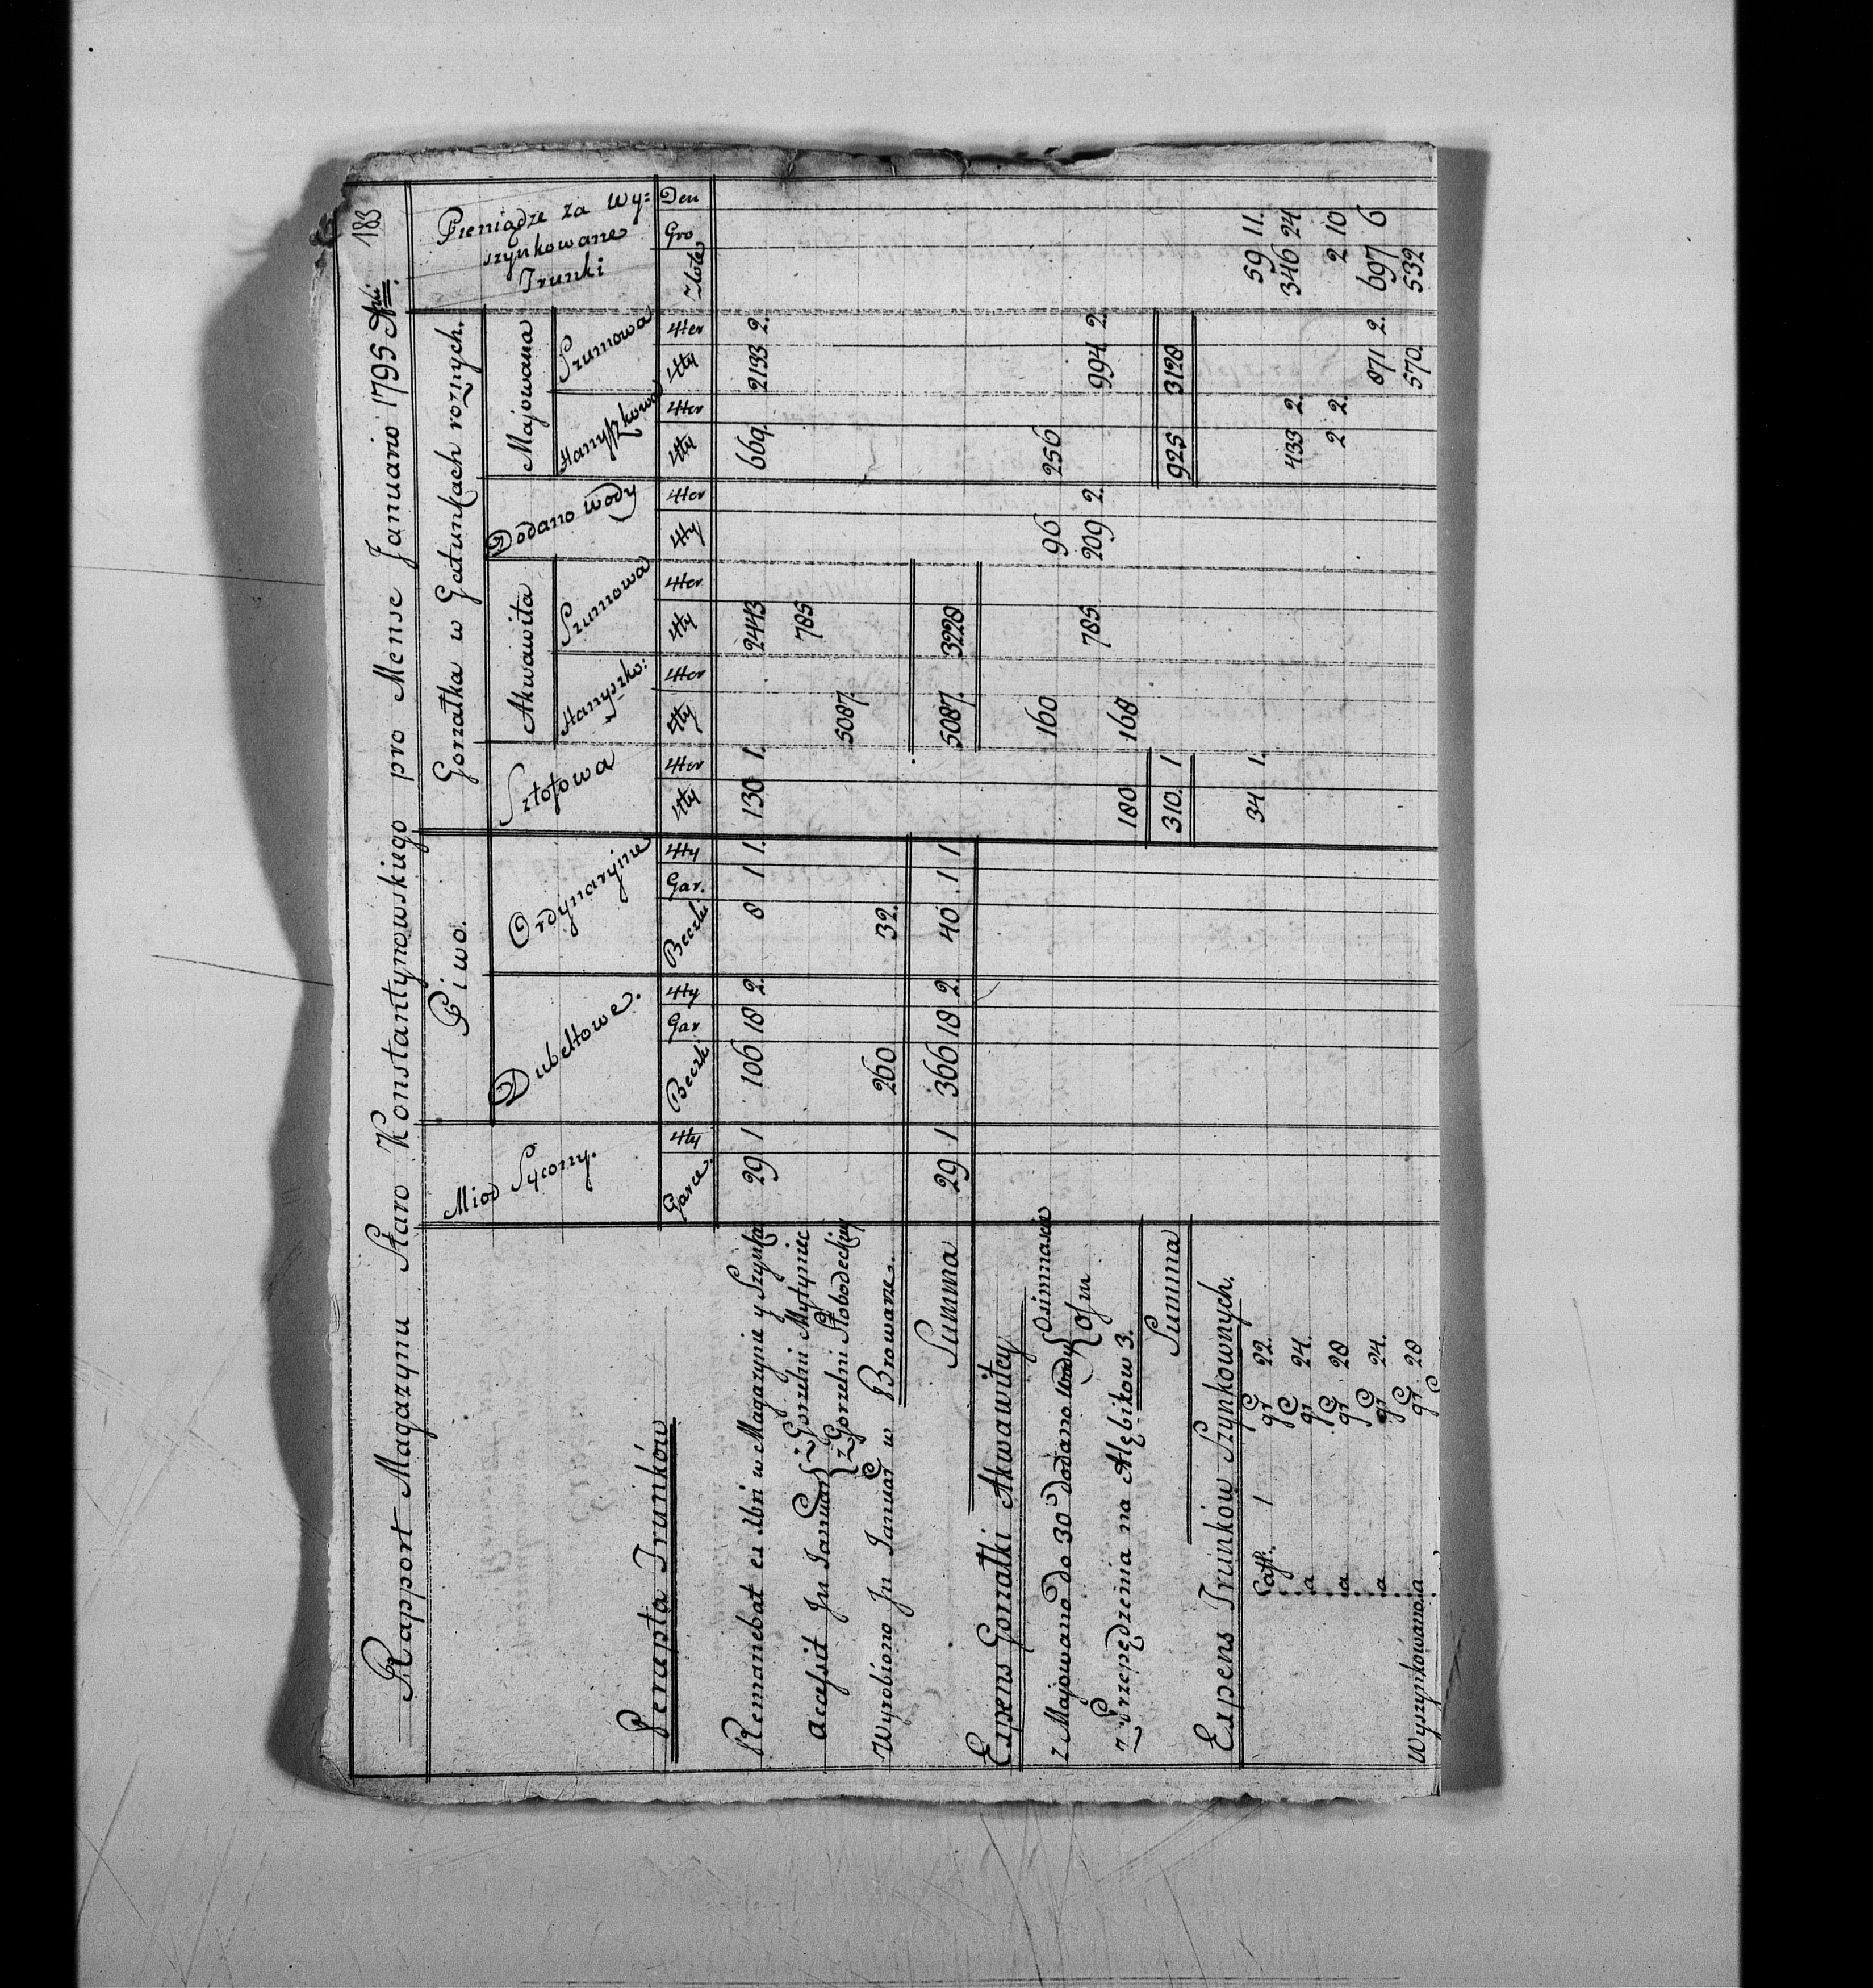 183
Rapport Magazynu Staro Konstantynowskiego pro Mense Januario 1795 Ani.
Percepta Trunków
Miod Sycony.
Piwo.
Gorzałka w Gatunkach roznych.
Pieniądze za Wy=
szynkowane
Trunki
Dubeltowe.
Ordynaryjne
Sztofowa
Akwawita
Dodano wody
Majowana
Hanyszko:
Szumowa
Hanyszkowa
Szumowa
Garce. 4ty Beczki Gar 4ty Beczki Gar. 4ty 4ty 4ter 4ty 4ter 4ty 4ter 4ty 4ter 4ty 4ter 4ty 4ter Złote Gro Den
Remanebat ex Xbri w Magazynie y Szynku 29 1 106 18 2. 8 1 1. 130 1. 2443 669. 2133 2.
Accessit Jn Januar z Gorzelni Mytyniec 785
z Gorzelni Słobodeckiy 5087.
Wyrobiono Jn Januar w Browarze. 260 32.
Summa 29 1 366 18 2. 40 1 1 5087. 3228
Expens Gorzałki Akwawitey
z Majowano do 30 dodano wody Osimnascie 160 96 256
Osm 785 209 2. 994 2.
z Przepędzenia na Alębikow 3. 180 168
Summa 310. 1 925 3128
Expens Trunków Szynkownych.
Satt. 1 gr 22. 34 1. 59 11.
a gr 24. 433 2. 346 24
a gr 28 2 2. 2 10
a gr 24. 871 2. 697 6
Wyszynkowano a gr 28 570. 532